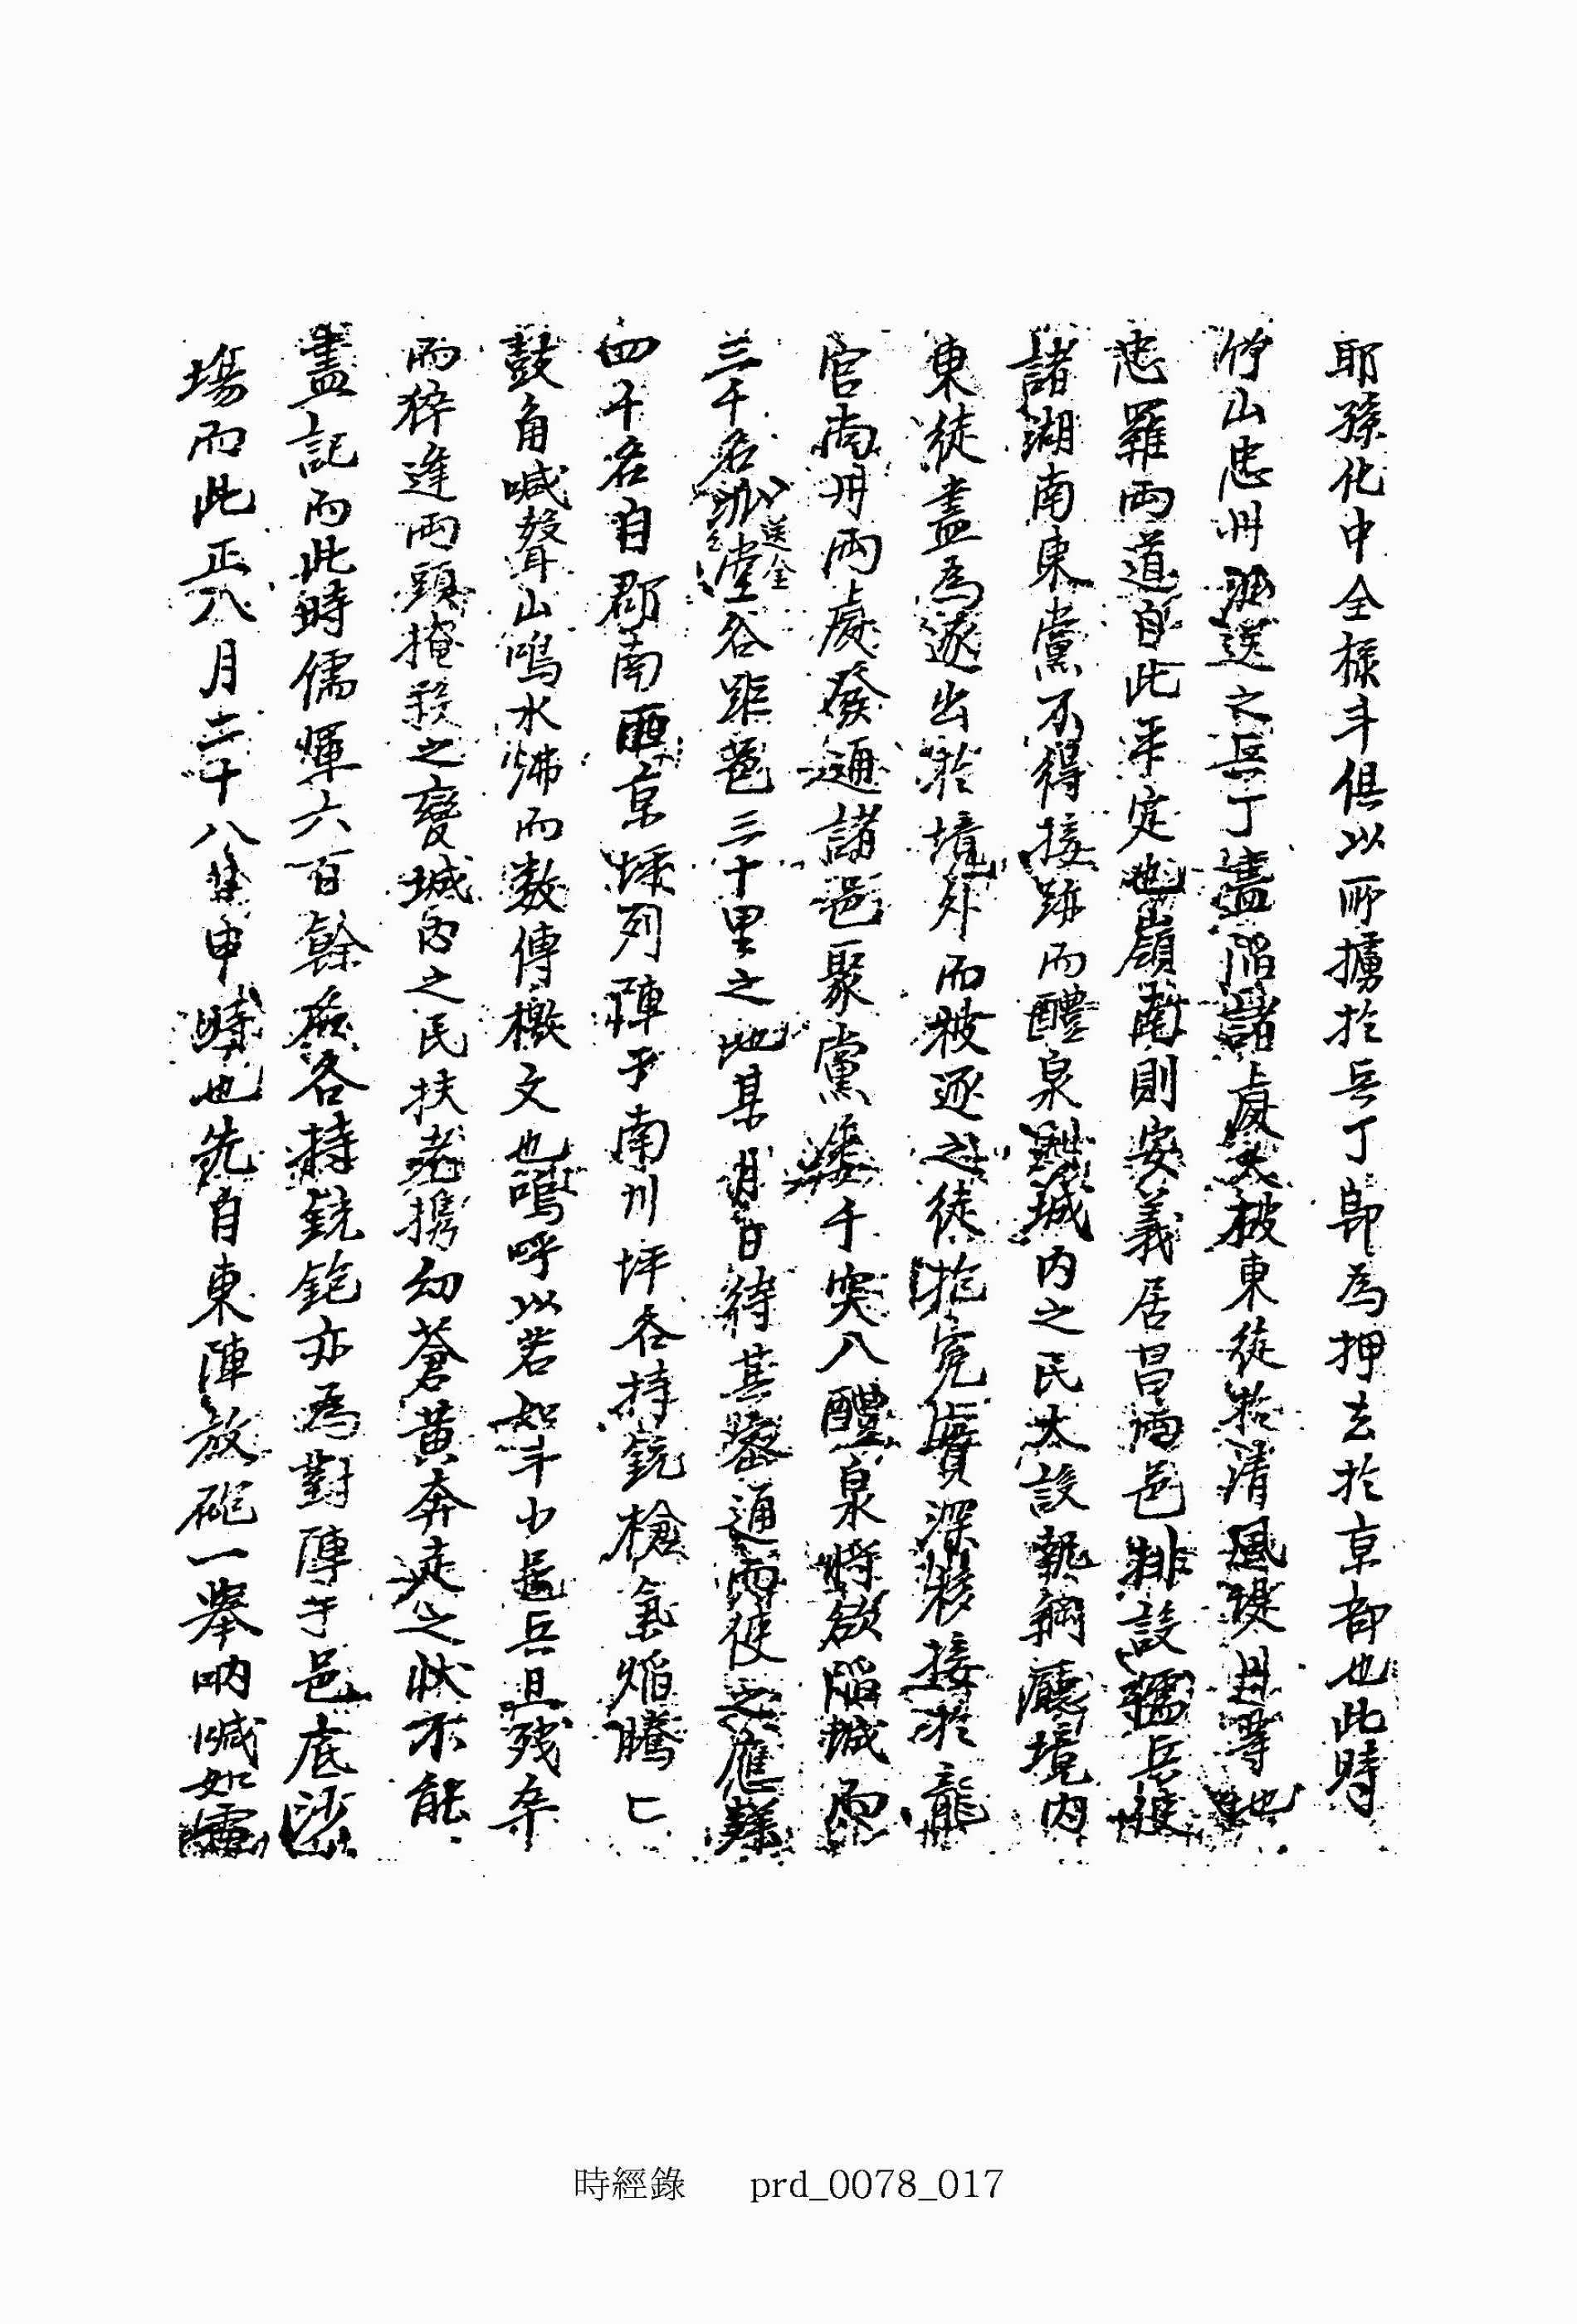 耶孫化中全樣斗俱以所擄於兵丁即為押去於京都也此時
竹山忠州派送之兵丁盡陷諸處大被東徒於淸風堤川等地
忠羅兩道自此平定也嶺南則安義居昌兩邑排設攎兵使
諸湖南東黨不得接跡而醴泉城內之民太設執綱廳境內
東徒盡為逐出於境外而被逐之徒抱寃實深移接於龍
官尙州兩處發通諸邑聚黨屢千突入醴泉將欲陷城而
三千名送全堂谷距邑三十里之地某月日待其密通而使之應
四千名自郡南京坪列陣乎南川坪各持銃槍氣焰騰亡
鼓角喊聲山鳴水沸而數傳檄文也嗚呼以若如斗小邑兵且殘卒
而猝逢兩頭掩殺之變城內之民扶老携幼蒼黃奔走之狀不能
盡記而此時儒軍六百餘名各持銃鉋亦為對陣于邑底沙
場而此正八月二十八日申時也先自東陣放砲一擧吶喊如雷